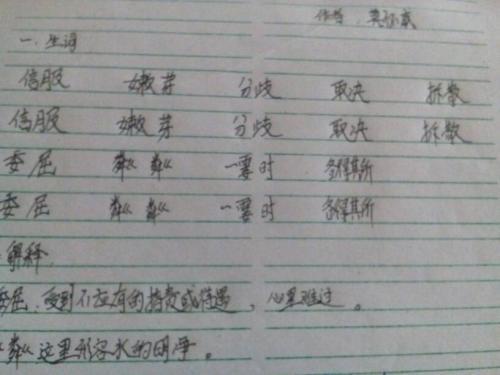 作者:莫怀戚
一、生词
信服 嫩芽 分歧 取决 拆散
信服 嫩芽 分歧 取决 拆散
委屈 粼粼 一霎时 各得其所
委屈 粼粼 一霎时 各得其所
解释
委屈:受到不应有的指责或待遇,心里难过。
粼这里形容水的明净。